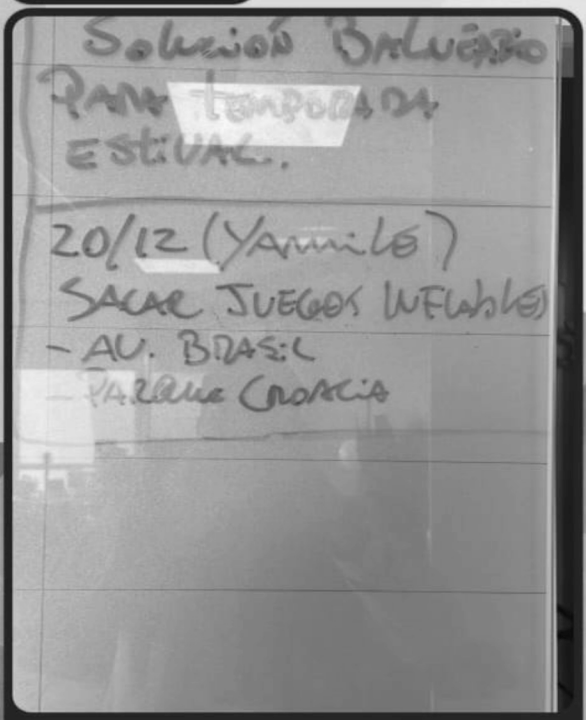 Solución BALNEARIO
PARA TEMPORADA
ESTIVAL.
20/12 (YAMILE)
SACAR JUEGOS INFLABLES
- AV. BRASIL
- PARQUE CROACIA